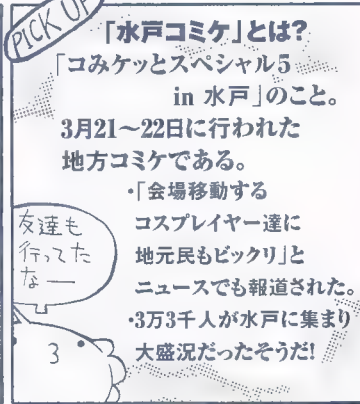 PICK UP
「水戸コミケ」とは?
「コみケッとスペシャル5
in 水戸」のこと。
3月21～22日に行われた
地方コミケである。
・「会場移動する
コスプレイヤー達に
地元民もビックリ」と
ニュースでも報道された。
・3万3千人が水戸に集まり
大盛況だったそうだ!
友達も
行ってた
なー